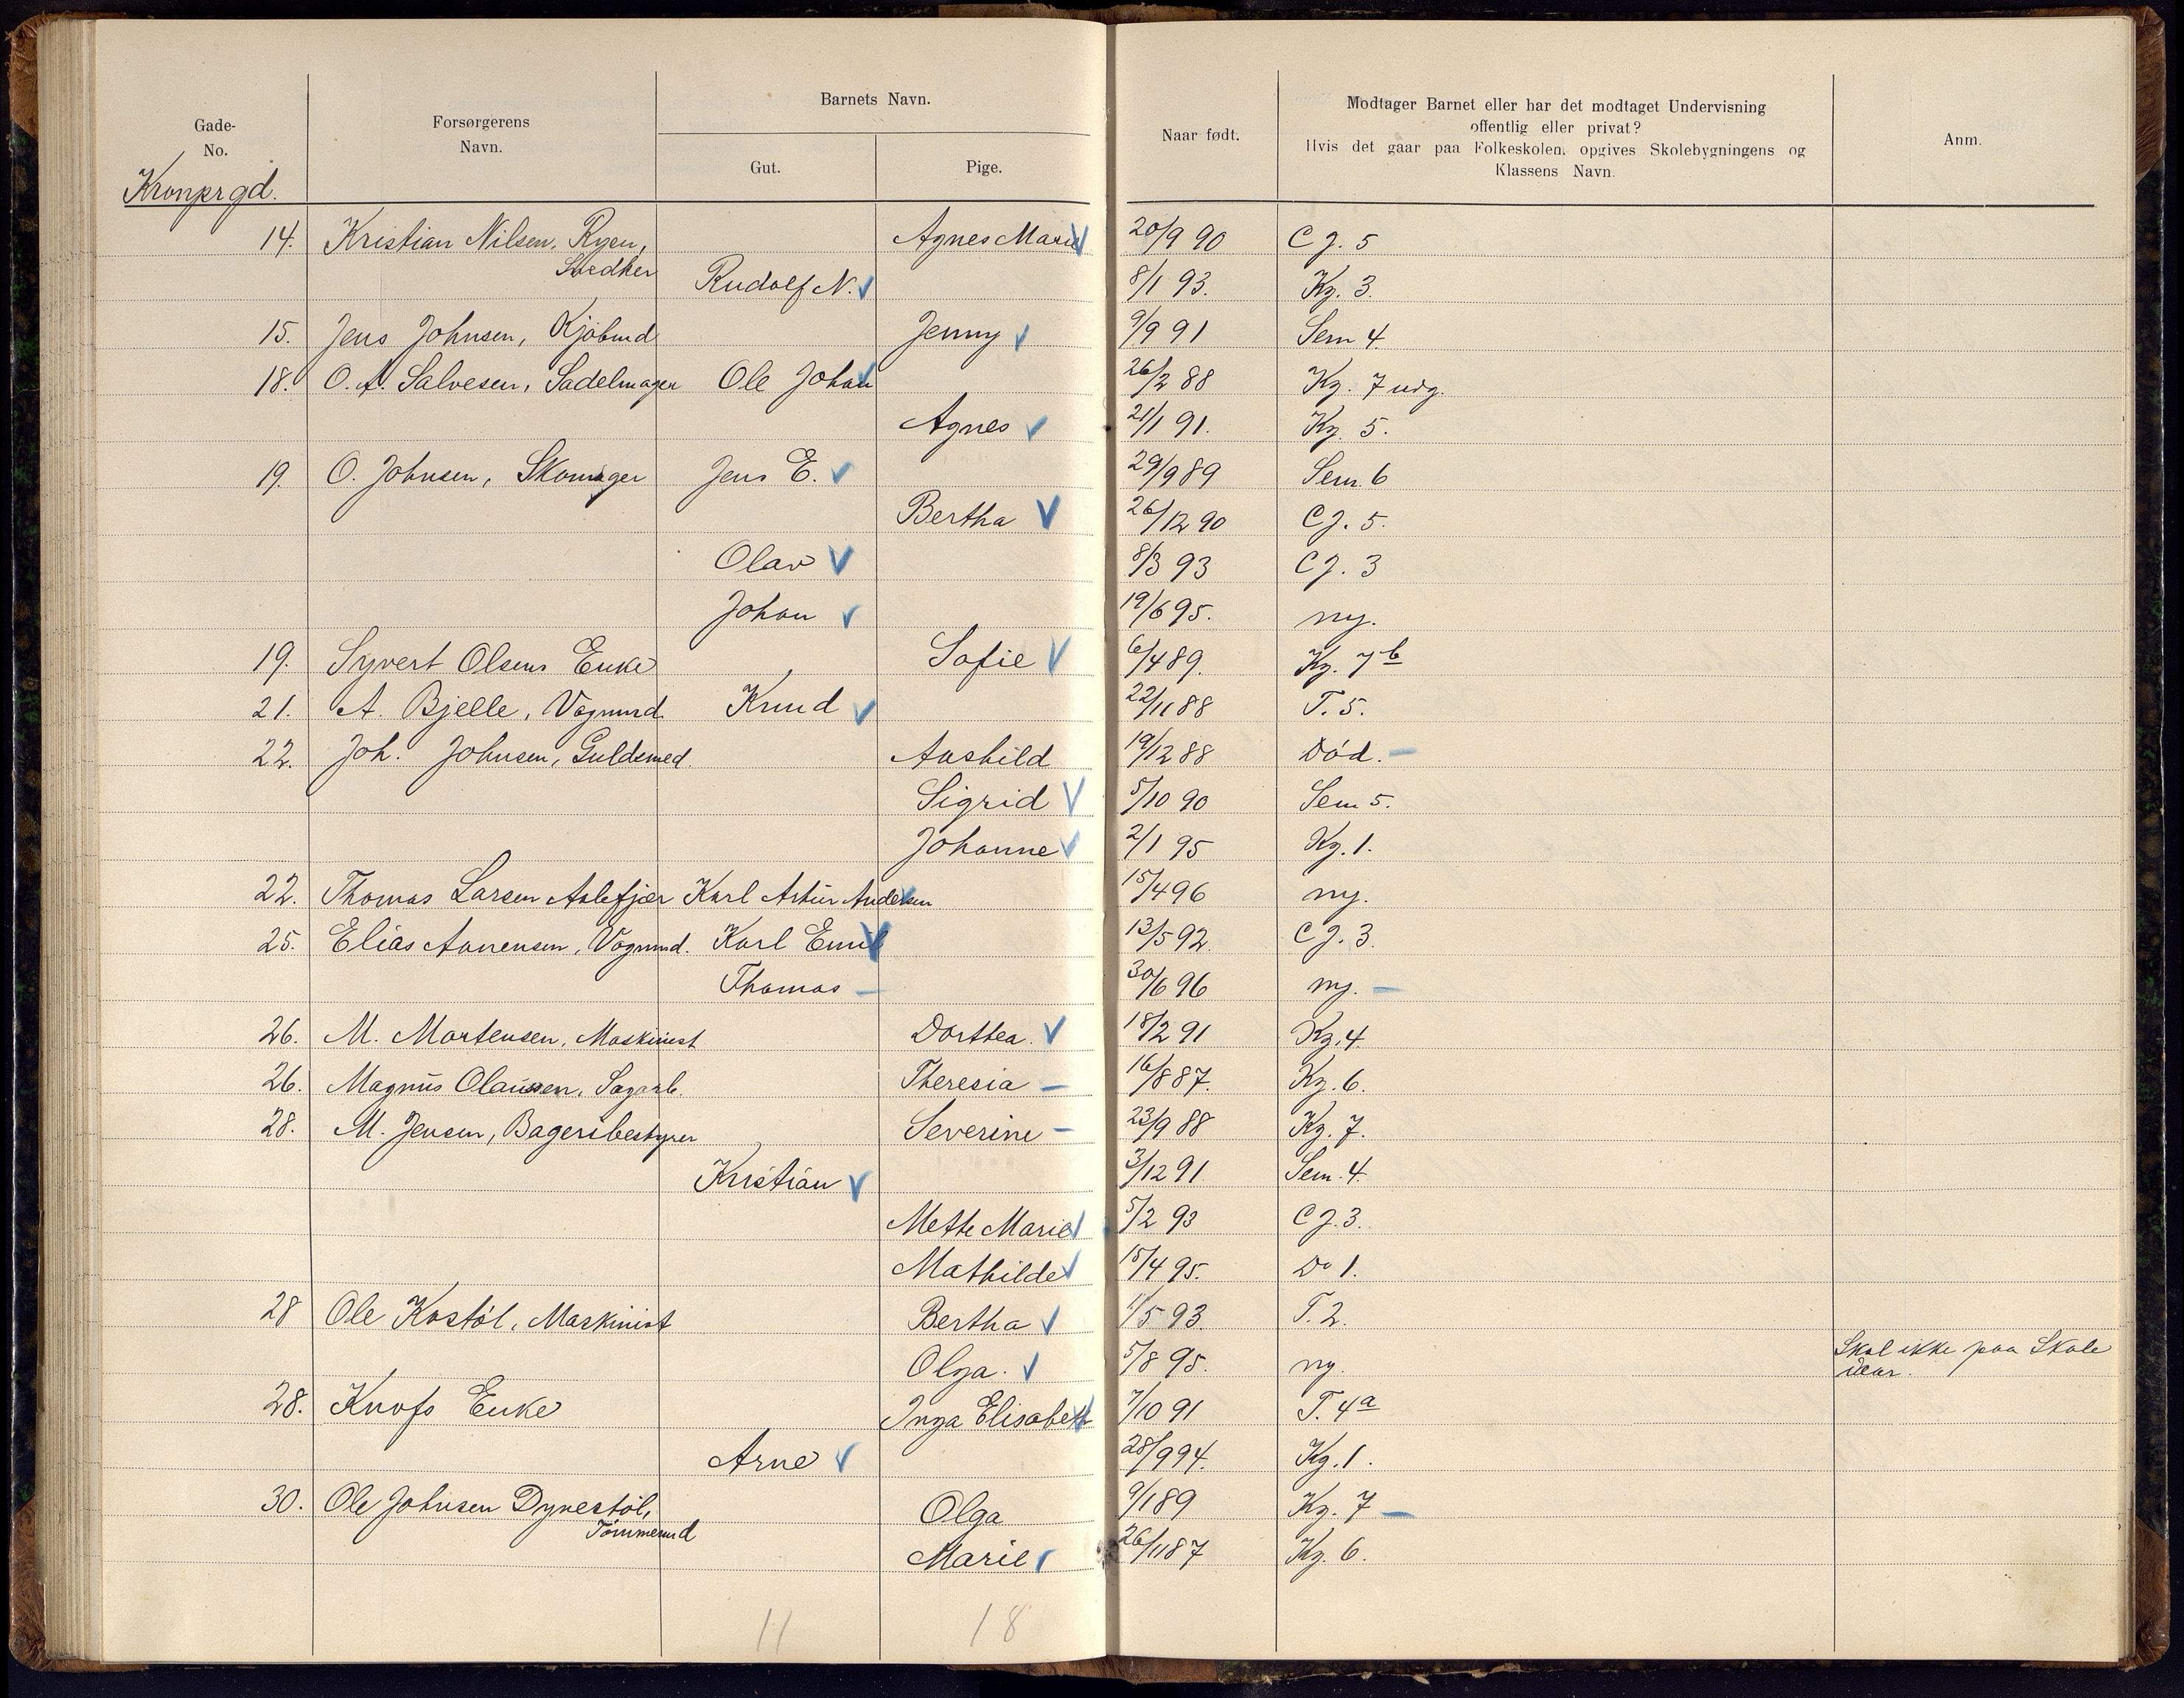 Gade-
No.
Forsørgerens
Navn.
Barnets Navn.
Gut.
Pige.
Naar født.
Modtager Barnet eller har det modtaget Undervisning
offentlig eller privat?
Hvis det gaar paa Folkeskolen, opgives Skolebygningens og
Klassens Navn.
Anm.
Kronprgd.
14. Kristian Nilsen, Ryen, Agnes Marie 20/9 90 C J. 5
Snedker Rudolf N. 8/1 93. Kg. 3.
15. Jens Johnsen, Kjøbmd Jenny 9/9 91 Sem 4
18. O. A. Salvesen, Sadelmager Ole Johan 26/2 88 Kg. 7 udg.
Agnes 21/1 91. Kg. 5.
19. O. Johnsen, Skomager Jens E. 29/9 89 Sem. 6
Bertha 26/12 90 C J. 5.
Olav 8/3 93 C J. 3
Johan 19/6 95. ny.
19. Syvert Olsens Enke Sofie 6/4 89. Kg. 7 b
21. A. Bjelle, Vognmd. Knud 22/11 88 T. 5.
22. Joh. Johnsen, Guldsmed. Aashild 19/12 88 Død. –
Sigrid 5/10 90 Sem 5.
Johanne 2/1 95 Kg. 1.
22. Thomas Larsen Aalefjær Karl Artur Andersen 15/4 96 ny.
25. Elias Aanensen, Vognmd. Karl Emil 13/5 92. C J. 3.
Thomas – 30/6 96 ny. –
26. M. Mortensen, Maskinist Dorthea. 18/2 91 Kg. 4.
26. Magnus Olaussen, Sagarb. Theresia – 16/8 87. Kg. 6.
28. M. Jensen, Bageribestyrer Severine – 23/9 88 Kg. 7.
Kristian 3/12 91. Sem. 4.
Mette Marie 5/2 93 C J. 3.
Mathilde 15/4 95. Do 1.
28 Ole Kostøl, Maskinist Bertha 1/5 93. T. 2.
Olga. 5/8 95. ny. Skal ikke paa Skole
iaar.
28. Knofs Enke Inga Elisabeth 7/10 91 T. 4 a
Arne 28/9 94. Kg. 1.
30. Ole Johnsen Dynestøl, Olga 9/1 89 Kg. 7 –
Tømmermd Marie 26/11 87 Kg. 6.
11 18